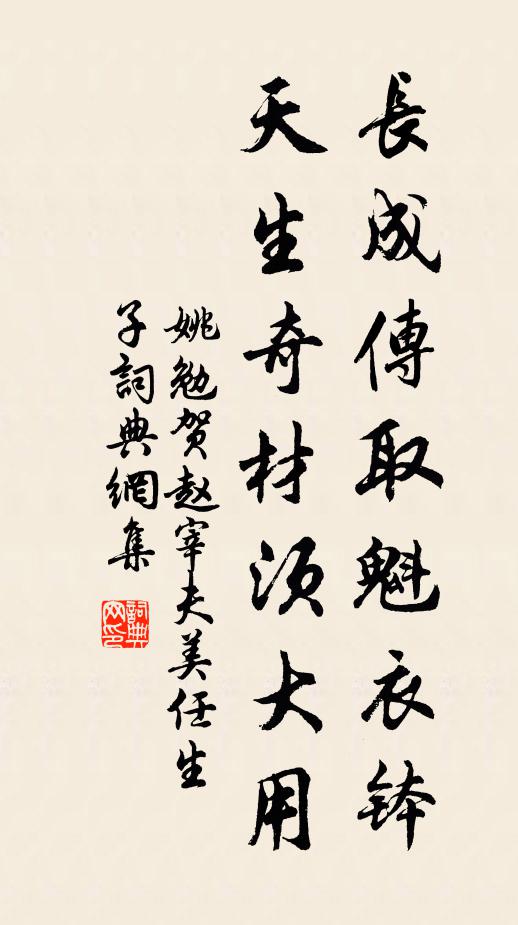 長成傳取魁衣鉢
天生奇材須大用
姚勉賀赵宰夫美任生
子詞典網集
詞典网印